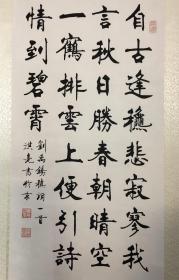 自古逢秋悲寂寥我
言秋日勝春朝晴空
一鶴排雲上便引詩
情到碧霄
劉禹錫秋詞一首
洪亮書於京